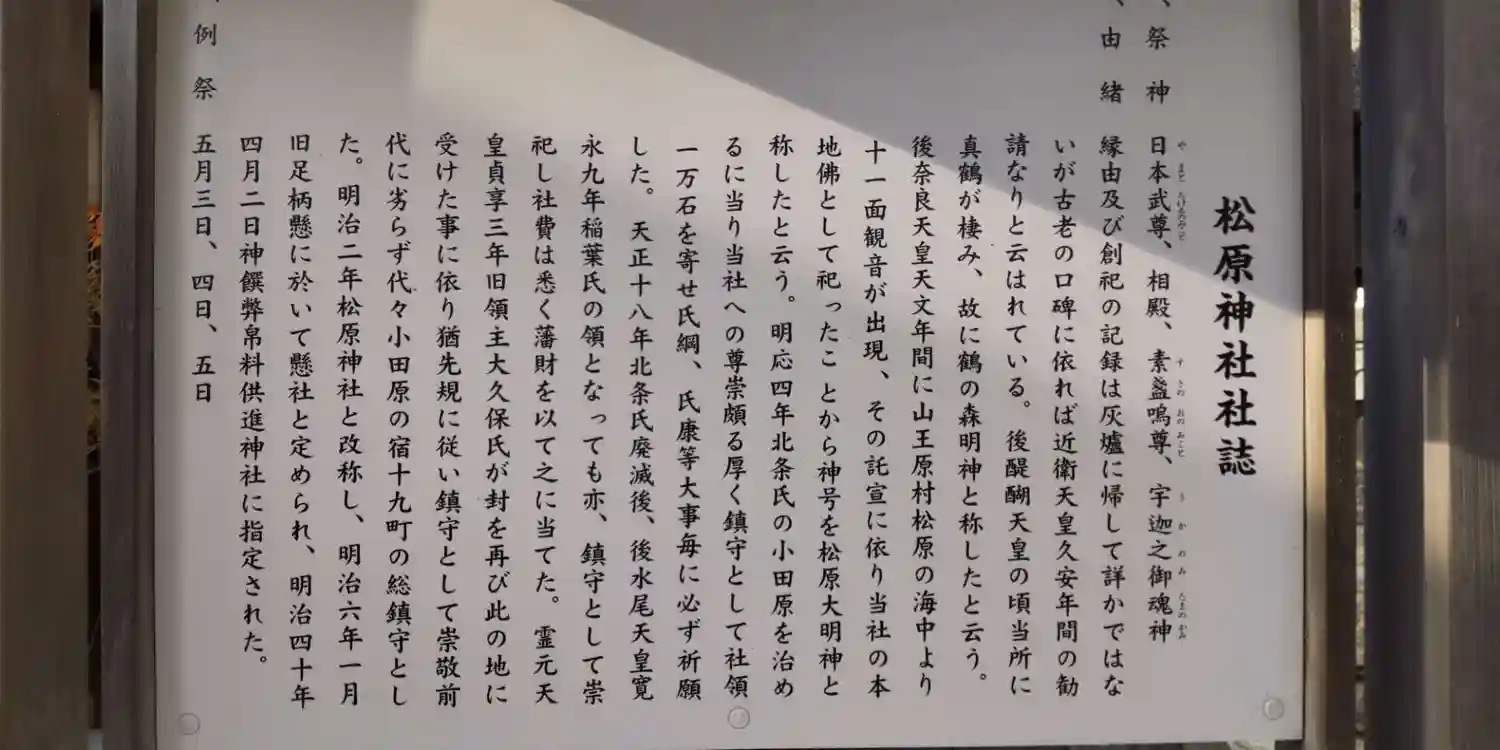 松原神社社誌
、祭神 日本武尊、相殿、素盞嗚尊、宇迦之御魂神
やまとたけるのみこと すさのおのみこと うかのみたまのかみ
、由緒 縁由及び創祀の記録は灰爐に帰して詳かではな
いが古老の口碑に依れば近衛天皇久安年間の勧
請なりと云はれている。後醍醐天皇の頃当所に
真鶴が棲み、故に鶴の森明神と称したと云う。
後奈良天皇天文年間に山王原村松原の海中より
十一面観音が出現、その託宣に依り当社の本
地佛として祀ったことから神号を松原大明神と
称したと云う。明応四年北条氏の小田原を治め
るに当り当社への尊崇頗る厚く鎮守として社領
一万石を寄せ氏綱、氏康等大事毎に必ず祈願
した。天正十八年北条氏廃滅後、後水尾天皇寛
永九年稲葉氏の領となっても亦、鎮守として崇
祀し社費は悉く藩財を以て之に当てた。霊元天
皇貞享三年旧領主大久保氏が封を再び此の地に
受けた事に依り猶先規に従い鎮守として崇敬前
代に劣らず代々小田原の宿十九町の総鎮守とし
た。明治二年松原神社と改称し、明治六年一月
旧足柄懸に於いて懸社と定められ、明治四十年
四月二日神饌弊帛料供進神社に指定された。
例祭 五月三日、四日、五日